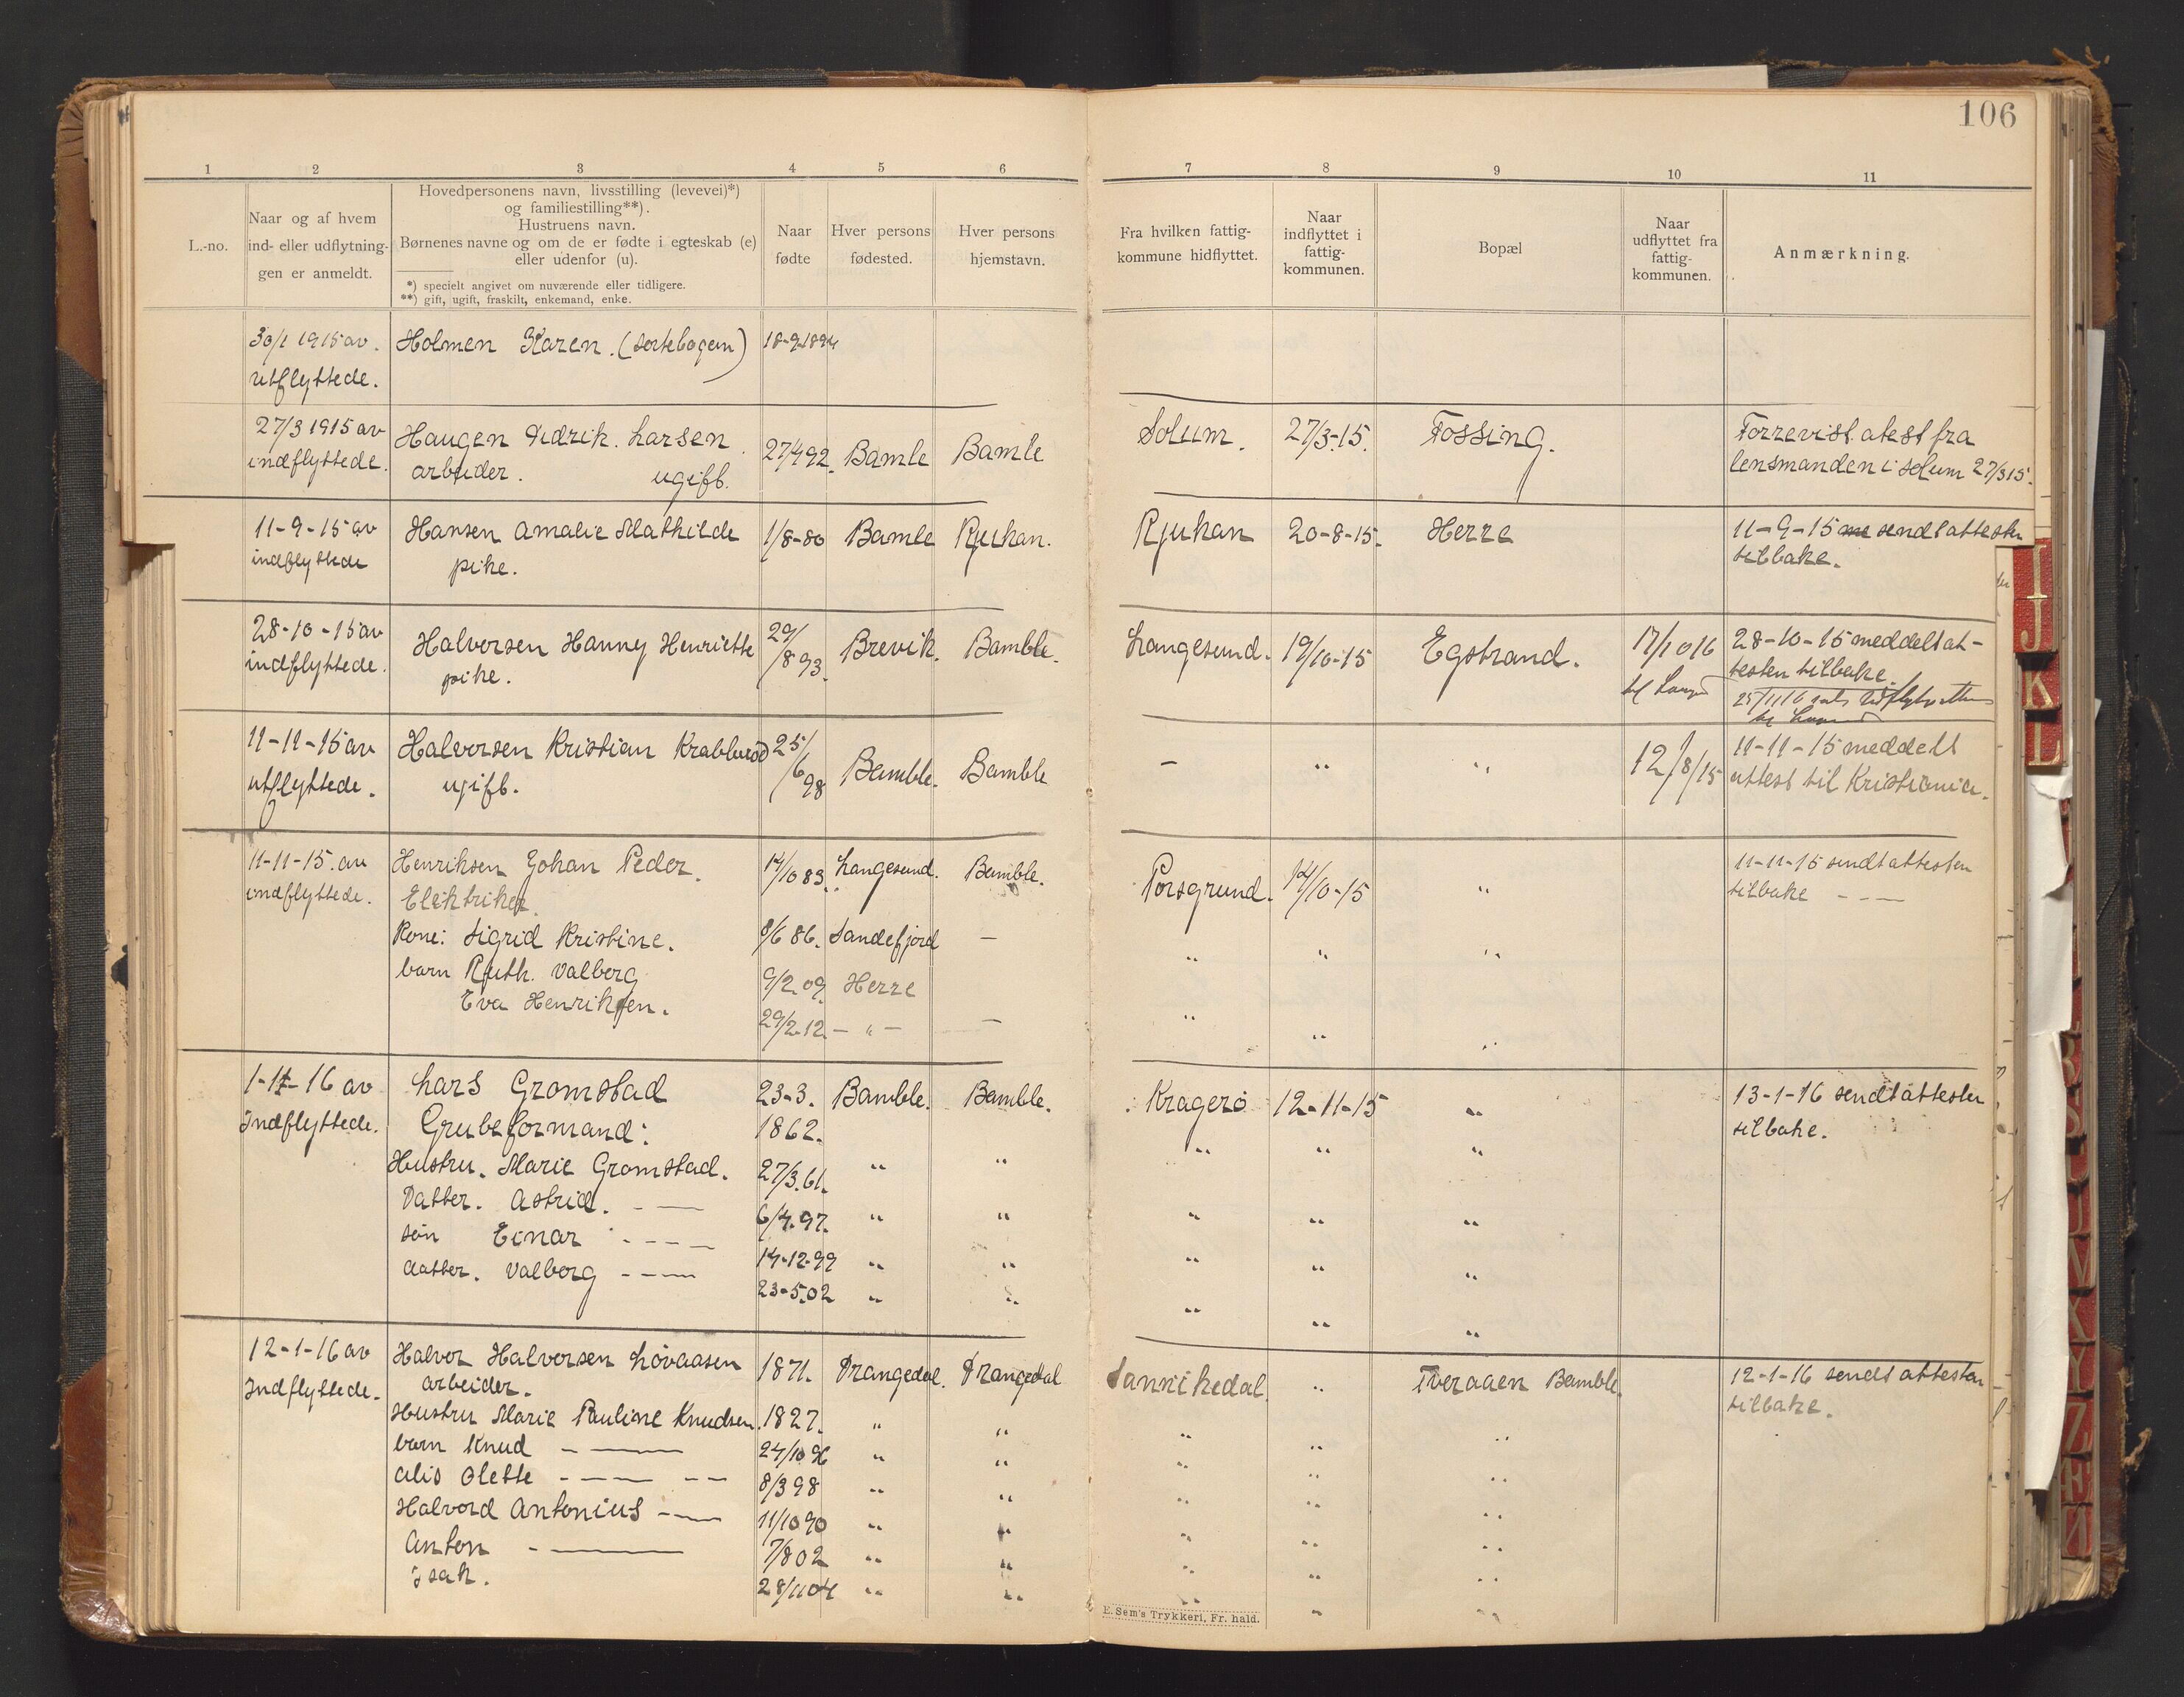 106
1 2 3 4 5 6 7 8 9 10 11
L.-no.
Naar og af hvem
ind- eller udflytnin-
gen er anmeldt.
Hovedpersonens navn, livsstilling (levevei)*)
og familiestilling**).
Hustruens navn.
Børnenes navne og om de er fødte i egteskab (e)
eller udenfor (u).
*) specielt angivet om nuværende eller tidligere.
**) gift, ugift, fraskilt, enkemand, enke.
Naar
fødte
Hver persons
fødested.
Hver persons
hjemstavn.
Fra hvilken fattig-
kommune hidflyttet.
Naar
indflyttet i
fattig-
kommunen.
Bopæl
Naar
udflyttet fra
fattig-
kommunen.
Anmærkning.
30/1 1915 av. Holmen Karen. (sortebogen) 18-9-1894
utflyttede.
27/3 1915 av Haugen Didrik. Larsen. 27/4 92. Bamle Bamle Solum. 27/3-15. Fossing. Forrevist. atest fra
indflyttede. arbeider. ugift. lensmanden i Solum 27/3 15.
11-9-15 av Hansen Amalie Mathilde 1/8-80 Bamle Rjukan. Rjukan 20-8-15. Herre 11-9-15 sendt attesten
indflyttede pike. tilbake.
28-10-15 av Halversen Hanny Henriette 29/8 93. Brevik. Bamble. Langesund. 19/10-15 Egstrand. 17/10 16 28-10-15 meddelt at-
indflyttede. pike. til testen tilbake.
25/11 16
11-11-15 av Halversen Kristian Krabberød 25/6 98 Bamble. Bamble — „ „ 12/8/15 11-11-15 meddelt
utflyttede. ugift. attest til Kristiania.
11-11-15. av Henriksen Johan Peder. 14/10 83. Langesund. Bamble. Porsgrund. 14/10-15 „ 11-11-15 sendt attesten
indflyttede. Elektriker. tilbake - - —
Kone: Sigrid Kristine. 8/6 86. Sandefjord — „ „ „
barn Ruth. Valborg 9/2 09. Herre
Eva Henriksen. 29/2-12 — „ — — „ „ „
1-11-16 av Lars Gromstad 23-3. Bamble. Bamble. Kragerö 12-11-15 „ 13-1-16 sendt attesten
Indflyttede. Grubeformand: 1862. „ „ „ tilbake.
Hustru. Marie Gromstad. 27/3.61. „ „
Datter. Astrid. - — 6/4.97. „ „ „ „ „
sön Einar - - - — 14-12-99 „ „ „ „ „
datter. Valborg - - — 23-5.02 „ „ „ „ „
12-1-16 av Halvor Halversen Lövaasen 1871. Drangedal. Drangedal Sannikedal. „ Tveraaen Bamble. 12-1-16 sendt attesten
Indflyttede. arbeider. tilbake.
Hustru Marie Pauline Knudsen. 1827. „ „ „ „ „
barn Knud - — 24/10 96 „ „ „ „ „
Alis Olette - - — - - 8/3 98 „ „ „ „ „
Halvord Antonius - — 11/10 90 „ „ „ „ „
Anton - — 7/8 02 „ „ „ „ „
Isak. 28/11 04 „ „ „ „ „
E. Sem's Trykkeri, Fr. hald.
I
J
K
L